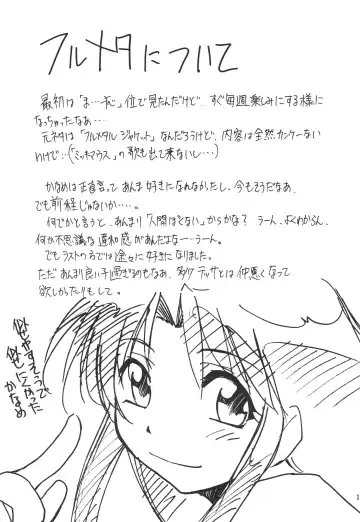 フルメタについて
最初は「ま…ｱﾆﾒ」位で見たんだけど、すぐ毎週楽しみにする様に
なっちゃったなぁ…
元ネタは「フルメタルジャケット」なんだろうけど、内容は全然カンケーない
わけで…(「ミッキーマウス」の歌も出て来ないし…)
かなめは正直言ってあんま好きになれなかったし、今もそうだなぁ、
でも前程じゃないか…。
何でかと言うと、あんまり「人間ぽくない」からかな?うーん、よくわからん。
何か不思議な違和感があんだよな…うーん。
でもラストの方では途々に好きになりました。
ただあんまり良い子過ぎるのもなぁ、テッサとは仲悪くなって
欲しかったりもして。
似せやすそうで
似せにくかった
かなめ
1